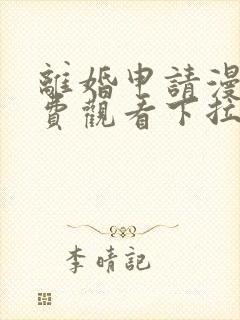 離婚申請漫
費觀看下拉
李晴記